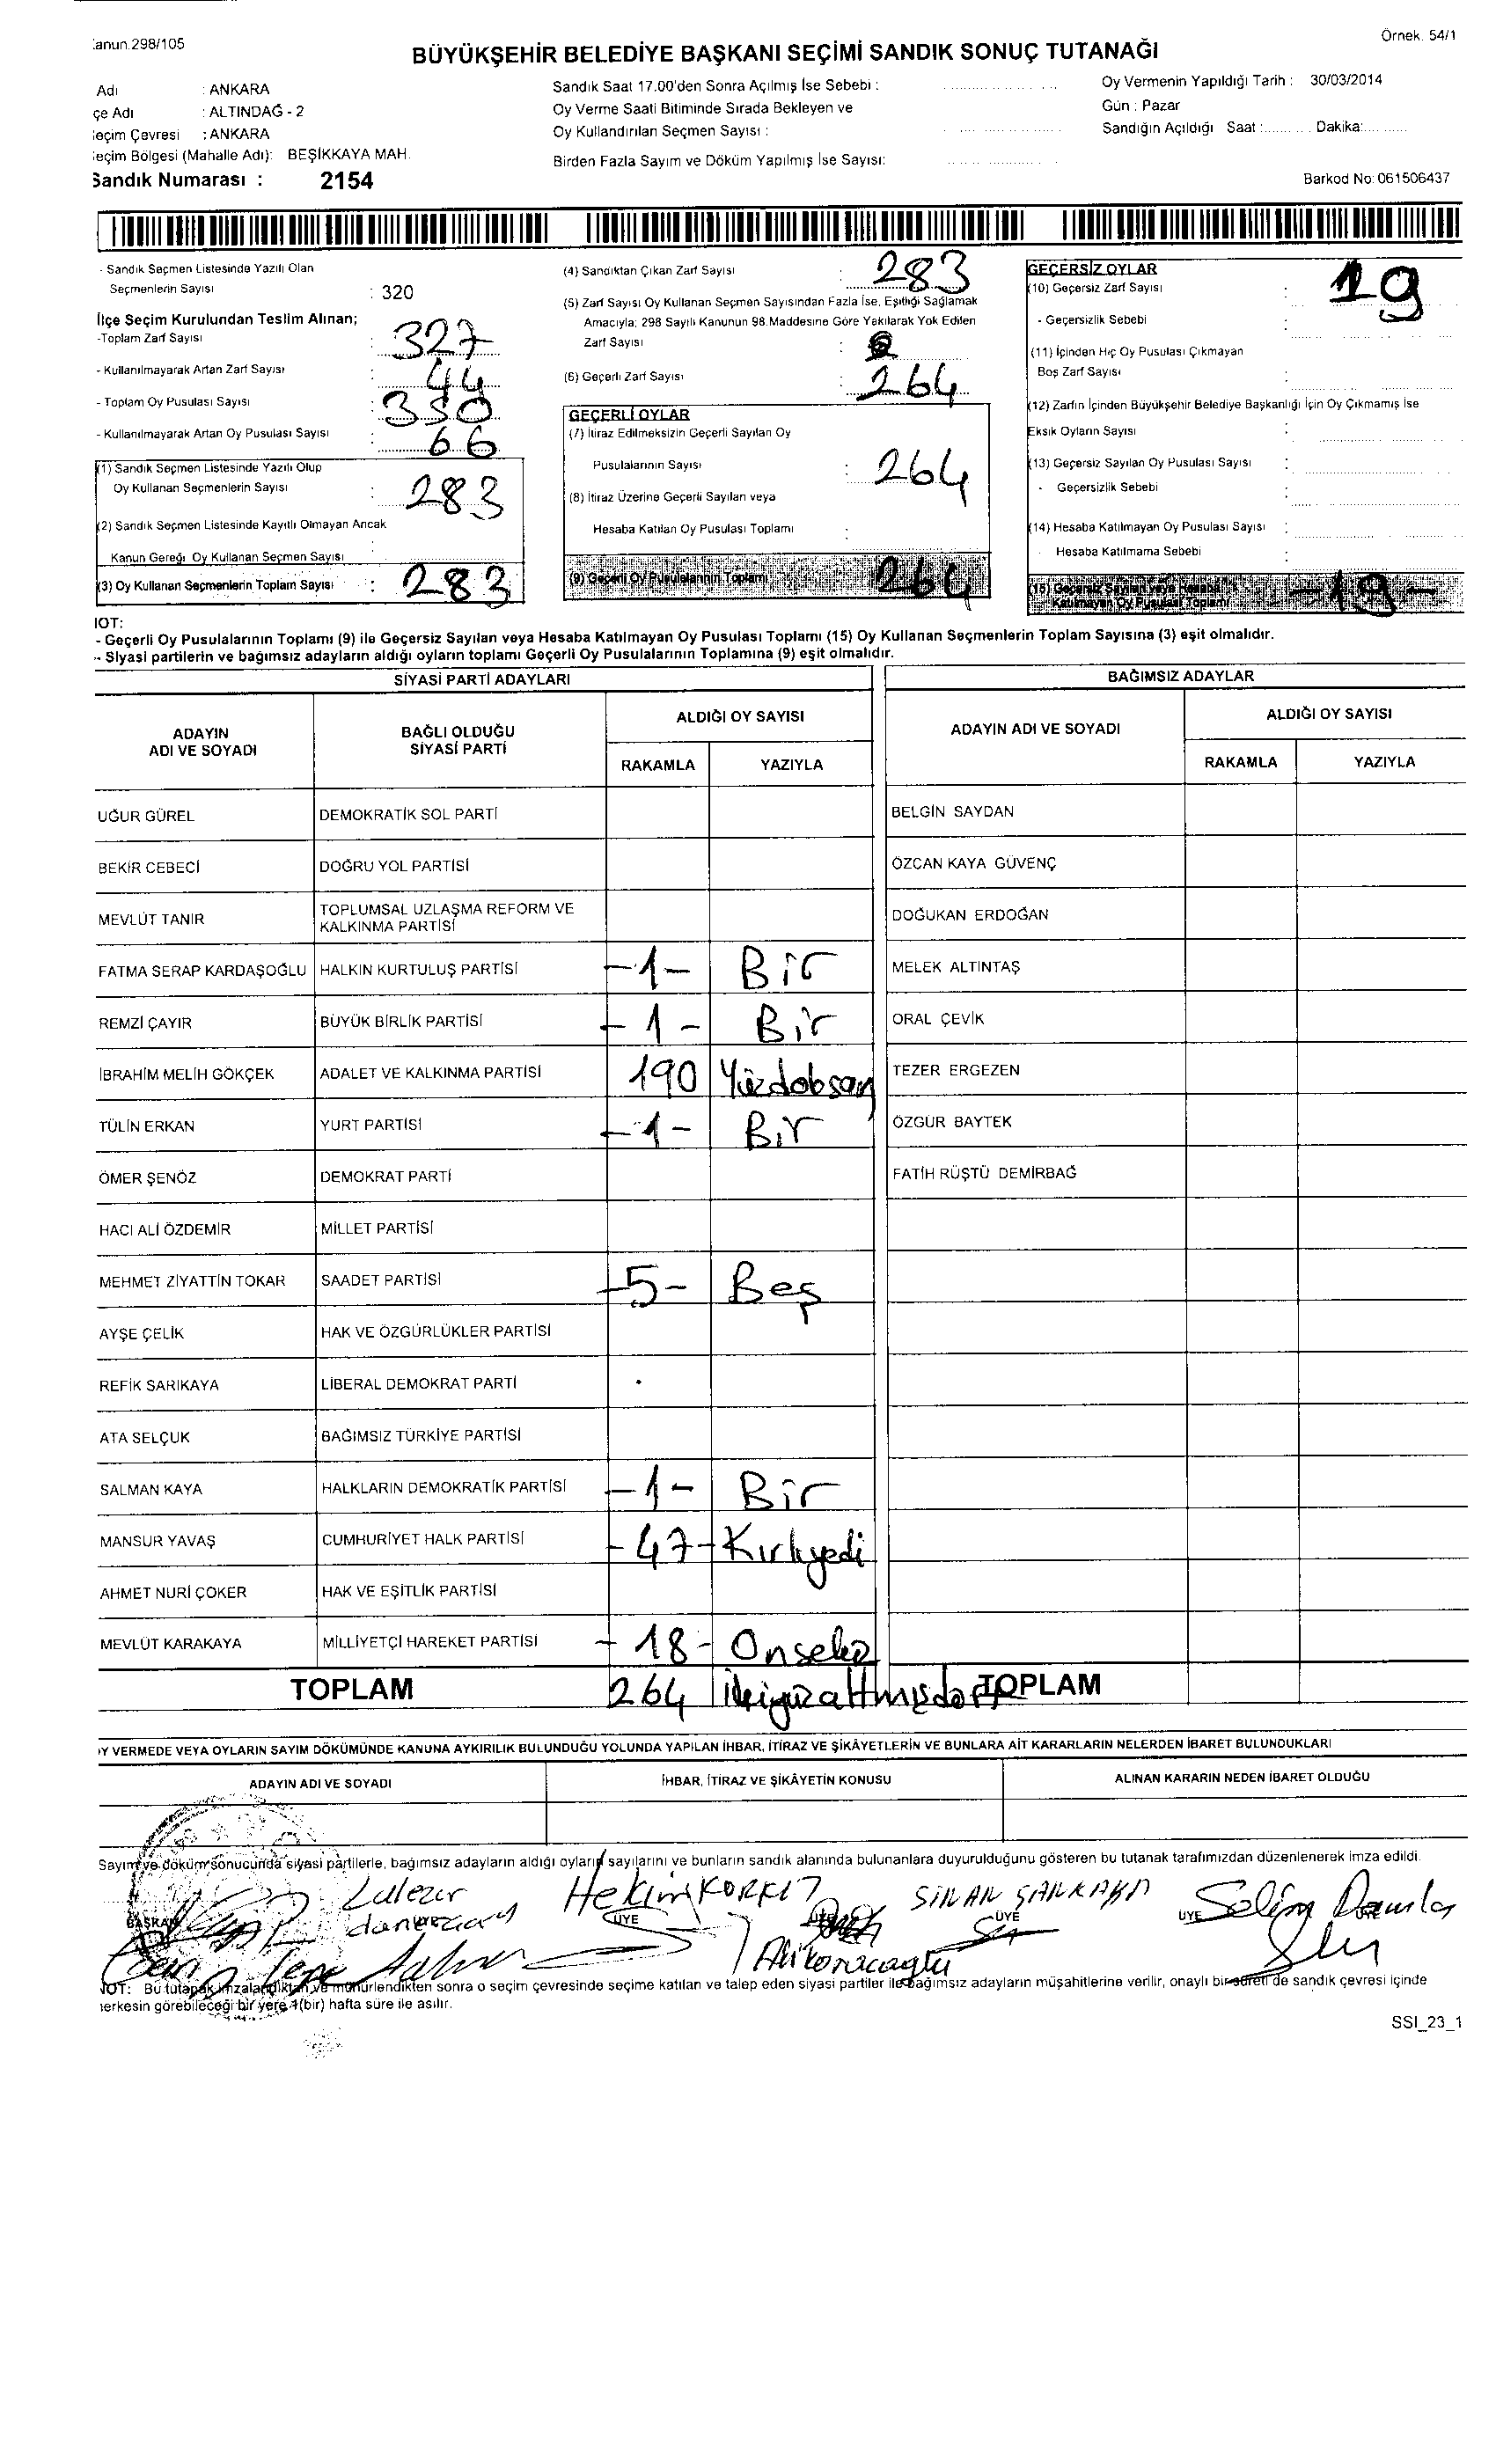 anun.298/105
Örnek. 54/1
BÜYÜKŞEHİR BELEDİYE BAŞKANI SEÇİMİ SANDIK SONUÇ TUTANAĞI
Adı : ANKARA
çe Adı : ALTINDAĞ - 2
eçim Çevresi : ANKARA
eçim Bölgesi (Mahalle Adı): BEŞİKKAYA MAH.
Sandık Numarası : 2154
Sandık Saat 17.00'den Sonra Açılmış İse Sebebi :
Oy Verme Saati Bitiminde Sırada Bekleyen ve
Oy Kullandırılan Seçmen Sayısı :
Birden Fazla Sayım ve Döküm Yapılmış İse Sayısı:
Oy Vermenin Yapıldığı Tarih : 30/03/2014
Gün : Pazar
Sandığın Açıldığı Saat :........... Dakika:...........
Barkod No: 061506437
- Sandık Seçmen Listesinde Yazılı Olan
Seçmenlerin Sayısı : 320
İlçe Seçim Kurulundan Teslim Alınan;
-Toplam Zarf Sayısı : 327
- Kullanılmayarak Artan Zarf Sayısı : 44
- Toplam Oy Pusulası Sayısı : 350
- Kullanılmayarak Artan Oy Pusulası Sayısı : 66
(1) Sandık Seçmen Listesinde Yazılı Olup
Oy Kullanan Seçmenlerin Sayısı : 283
(2) Sandık Seçmen Listesinde Kayıtlı Olmayan Ancak
Kanun Gereği Oy Kullanan Seçmen Sayısı :
(3) Oy Kullanan Seçmenlerin Toplam Sayısı : 283
(4) Sandıktan Çıkan Zarf Sayısı : 283
(5) Zarf Sayısı Oy Kullanan Seçmen Sayısından Fazla İse, Eşitliği Sağlamak
Amacıyla; 298 Sayılı Kanunun 98.Maddesine Göre Yakılarak Yok Edilen
Zarf Sayısı :
(6) Geçerli Zarf Sayısı : 264
GEÇERLİ OYLAR
(7) İtiraz Edilmeksizin Geçerli Sayılan Oy
Pusulalarının Sayısı : 264
(8) İtiraz Üzerine Geçerli Sayılan veya
Hesaba Katılan Oy Pusulası Toplamı :
(9) Geçerli Oy Pusulalarının Toplamı 264
GEÇERSİZ OYLAR
(10) Geçersiz Zarf Sayısı : 19
- Geçersizlik Sebebi :
(11) İçinden Hiç Oy Pusulası Çıkmayan
Boş Zarf Sayısı :
(12) Zarfın İçinden Büyükşehir Belediye Başkanlığı İçin Oy Çıkmamış İse
Eksik Oyların Sayısı :
(13) Geçersiz Sayılan Oy Pusulası Sayısı :
- Geçersizlik Sebebi :
(14) Hesaba Katılmayan Oy Pusulası Sayısı :
- Hesaba Katılmama Sebebi :
(15) Geçersiz Sayılan veya Hesaba
Katılmayan Oy Pusulası Toplamı -19-
IOT:
- Geçerli Oy Pusulalarının Toplamı (9) ile Geçersiz Sayılan veya Hesaba Katılmayan Oy Pusulası Toplamı (15) Oy Kullanan Seçmenlerin Toplam Sayısına (3) eşit olmalıdır.
- Siyasi partilerin ve bağımsız adayların aldığı oyların toplamı Geçerli Oy Pusulalarının Toplamına (9) eşit olmalıdır.
SİYASİ PARTİ ADAYLARI
BAĞIMSIZ ADAYLAR
ADAYIN
ADI VE SOYADI
BAĞLI OLDUĞU
SİYASİ PARTİ
ALDIĞI OY SAYISI
RAKAMLA YAZIYLA
ADAYIN ADI VE SOYADI
ALDIĞI OY SAYISI
RAKAMLA YAZIYLA
UĞUR GÜREL DEMOKRATİK SOL PARTİ BELGİN SAYDAN
BEKİR CEBECİ DOĞRU YOL PARTİSİ ÖZCAN KAYA GÜVENÇ
MEVLÜT TANIR TOPLUMSAL UZLAŞMA REFORM VE
KALKINMA PARTİSİ DOĞUKAN ERDOĞAN
FATMA SERAP KARDAŞOĞLU HALKIN KURTULUŞ PARTİSİ -1- Bir MELEK ALTINTAŞ
REMZİ ÇAYIR BÜYÜK BİRLİK PARTİSİ -1- Bir ORAL ÇEVİK
İBRAHİM MELİH GÖKÇEK ADALET VE KALKINMA PARTİSİ 190 Yüzdoksan TEZER ERGEZEN
TÜLİN ERKAN YURT PARTİSİ -1- Bir ÖZGÜR BAYTEK
ÖMER ŞENÖZ DEMOKRAT PARTİ FATİH RÜŞTÜ DEMİRBAĞ
HACI ALİ ÖZDEMİR MİLLET PARTİSİ
MEHMET ZİYATTİN TOKAR SAADET PARTİSİ -5- Beş
AYŞE ÇELİK HAK VE ÖZGÜRLÜKLER PARTİSİ
REFİK SARIKAYA LİBERAL DEMOKRAT PARTİ
ATA SELÇUK BAĞIMSIZ TÜRKİYE PARTİSİ
SALMAN KAYA HALKLARIN DEMOKRATİK PARTİSİ -1- Bir
MANSUR YAVAŞ CUMHURİYET HALK PARTİSİ -47- Kırkyedi
AHMET NURİ ÇOKER HAK VE EŞİTLİK PARTİSİ
MEVLÜT KARAKAYA MİLLİYETÇİ HAREKET PARTİSİ -18- Onsekiz
TOPLAM 264 İkiyüzaltmışdört TOPLAM
Y VERMEDE VEYA OYLARIN SAYIM DÖKÜMÜNDE KANUNA AYKIRILIK BULUNDUĞU YOLUNDA YAPILAN İHBAR, İTİRAZ VE ŞİKÂYETLERİN VE BUNLARA AİT KARARLARIN NELERDEN İBARET BULUNDUKLARI
ADAYIN ADI VE SOYADI İHBAR, İTİRAZ VE ŞİKÂYETİN KONUSU ALINAN KARARIN NEDEN İBARET OLDUĞU
Sayım ve döküm sonucunda siyasi partilerle, bağımsız adayların aldığı oyların sayılarını ve bunların sandık alanında bulunanlara duyurulduğunu gösteren bu tutanak tarafımızdan düzenlenerek imza edildi.
Lalezar Hekim KORKUT SİNAN ŞANKAYA Selim
BAŞKAN ÜYE ÜYE ÜYE
NOT: Bu tutanak imzalandıktan ve mühürlendikten sonra o seçim çevresinde seçime katılan ve talep eden siyasi partiler ile bağımsız adayların müşahitlerine verilir, onaylı bir sureti de sandık çevresi içinde
herkesin görebileceği bir yere 1(bir) hafta süre ile asılır.
SSI_23_1